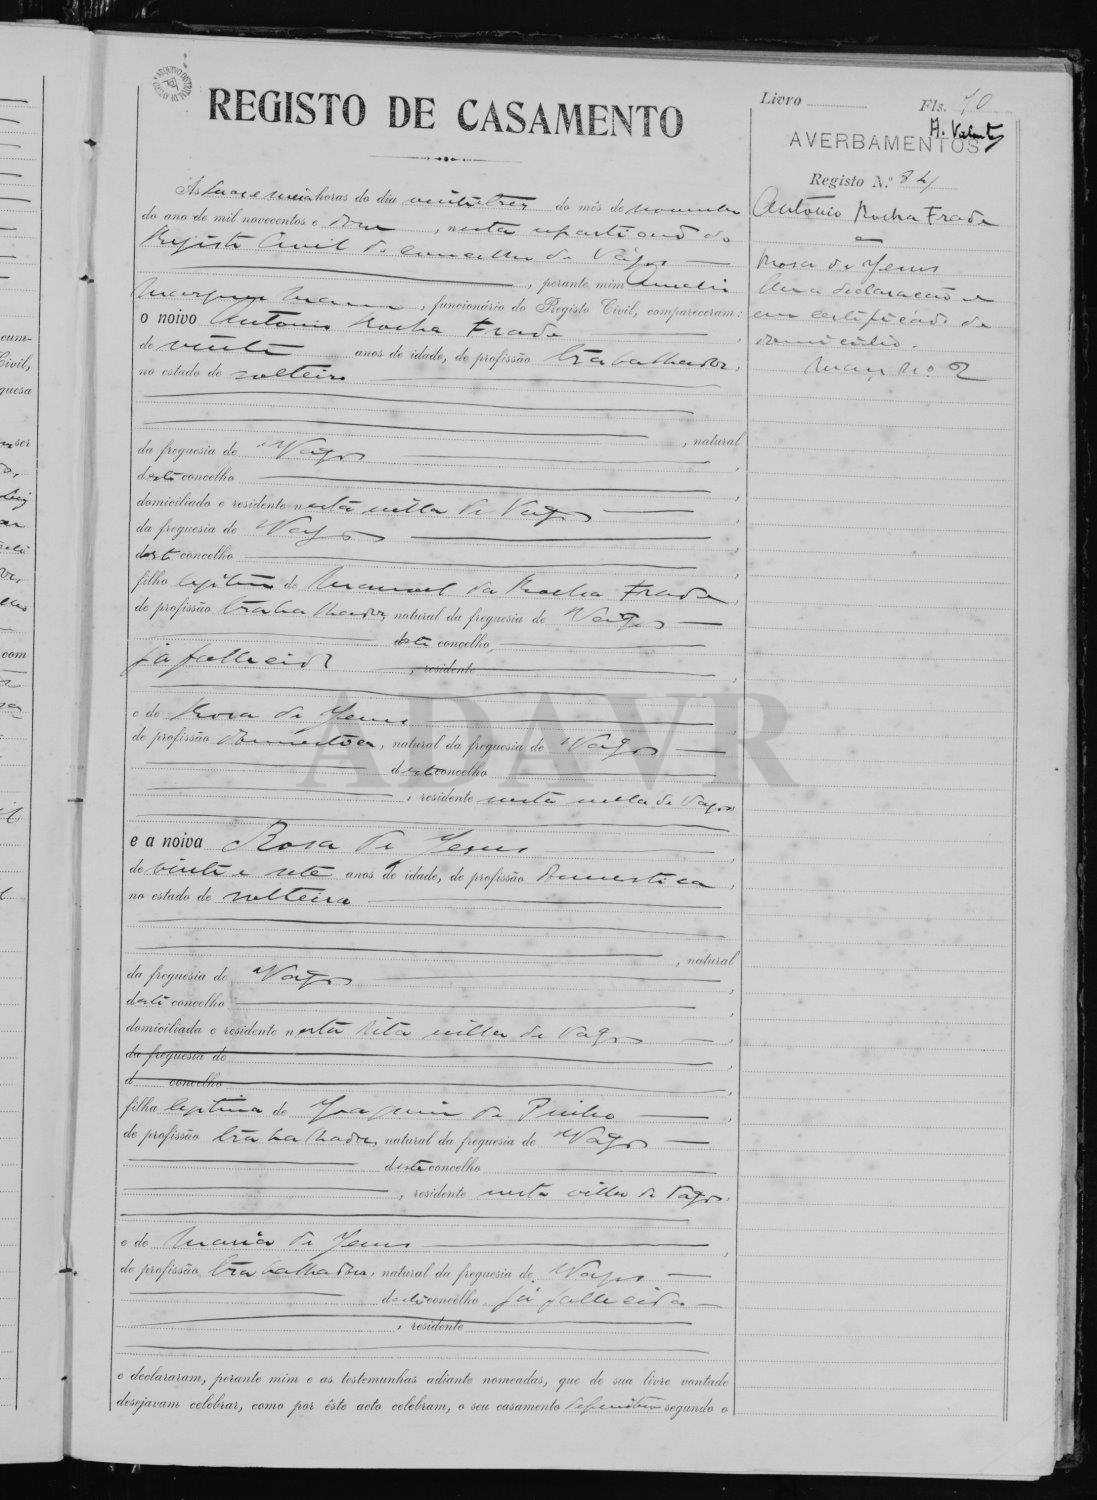 REGISTO DE CASAMENTO
Livro
Fls. 70
AVERBAMENTOS
Registo N.º 84
António Rocha Frade
e
Rosa de Jesus
Uma declaração e
um certificado de
domicilio.
As horas do dia vinte e tres do mês de novembro
do ano de mil novecentos e doze, nesta repartição do
Registo Civil do concelho de Vagos
, perante mim
, funcionário do Registo Civil, compareceram:
o noivo Antonio Rocha Frade
de vinte anos de idade, de profissão trabalhador,
no estado de solteiro
, natural
da freguesia de Vagos
deste concelho
domiciliado e residente nesta villa de Vagos
da freguesia de Vagos
deste concelho
filho legitimo de Manoel da Rocha Frade,
de profissão trabalhador, natural da freguesia de Vagos
deste concelho,
já fallecido, residente
e de Rosa de Jesus
de profissão domestica, natural da freguesia de Vagos
deste concelho
, residente nesta villa de Vagos
e a noiva Rosa de Jesus
de vinte e sete anos de idade, de profissão domestica,
no estado de solteira
, natural
da freguesia de Vagos
deste concelho
domiciliada e residente nesta dita villa de Vagos
da freguesia de
d concelho
filha legitima de Joaquim de Pinho
de profissão trabalhador, natural da freguesia de Vagos
deste concelho
, residente nesta villa de Vagos.
e de Maria de Jesus
de profissão trabalhadora, natural da freguesia de Vagos
deste concelho já fallecida
, residente
e declararam, perante mim e as testemunhas adiante nomeadas, que de sua livre vontade
desejavam celebrar, como por êste acto celebram, o seu casamento definitivo segundo o
ADAVR